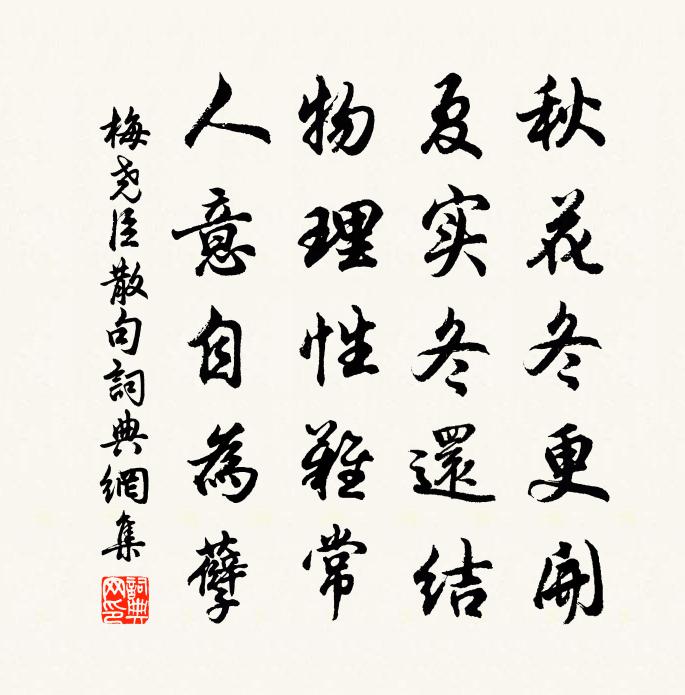 秋花冬更開
夏实冬還结
物理性難常
人意自為孽
梅尧臣散句詞典網集
詞典网印